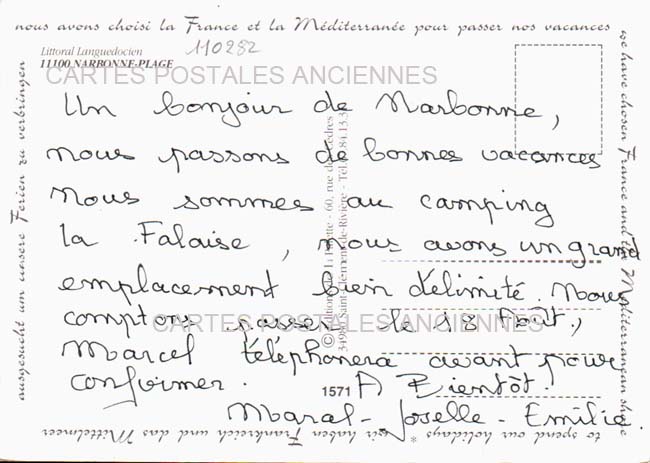 nous avons choisi la France et la Méditerranée pour passer nos vacances
we have chosen France and the Mediterranean shore
to spend our holidays * wir haben Frankreich und das Mittelmeer
ausgesucht um unsere Ferien zu verbringen
110282
Littoral Languedocien
11100 NARBONNE-PLAGE
CARTES POSTALES ANCIENNES
Un bonjour de Narbonne,
nous passons de bonnes vacances
Nous sommes au camping
la Falaise, nous avons un grand
emplacement bien délimité. Nous
comptons passer le 18 Août,
CARTES POSTALES ANCIENNES
Marcel téléphonera avant pour
confirmer. A Bientôt.
1571
Marcel - Joselle - Emilie.
60, rue des Cèdres
Saint-Clément-de-Rivière - Tél.